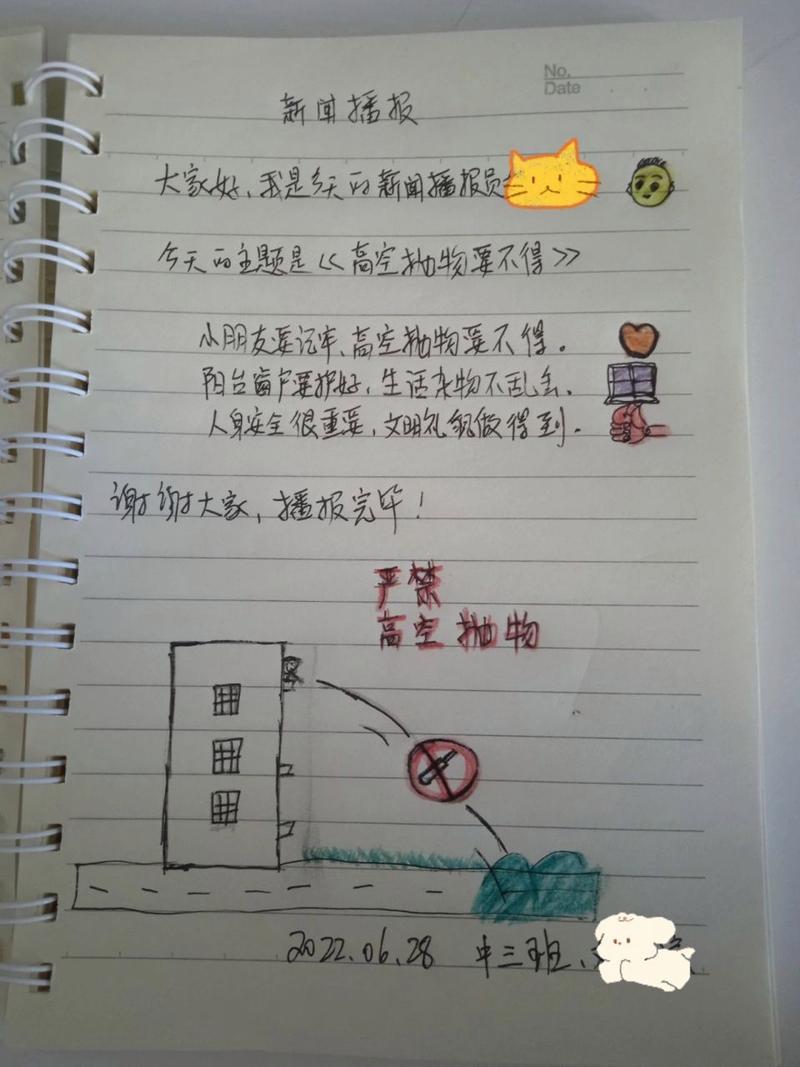 No.
Date
新闻播报
大家好,我是今天的新闻播报员
今天的主题是《高空抛物要不得》
小朋友要记牢、高空抛物要不得。
阳台窗户要护好,生活杂物不乱丢。
人身安全很重要,文明礼貌做得到。
谢谢大家,播报完毕!
严禁
高空抛物
2022.06.28 中三班、